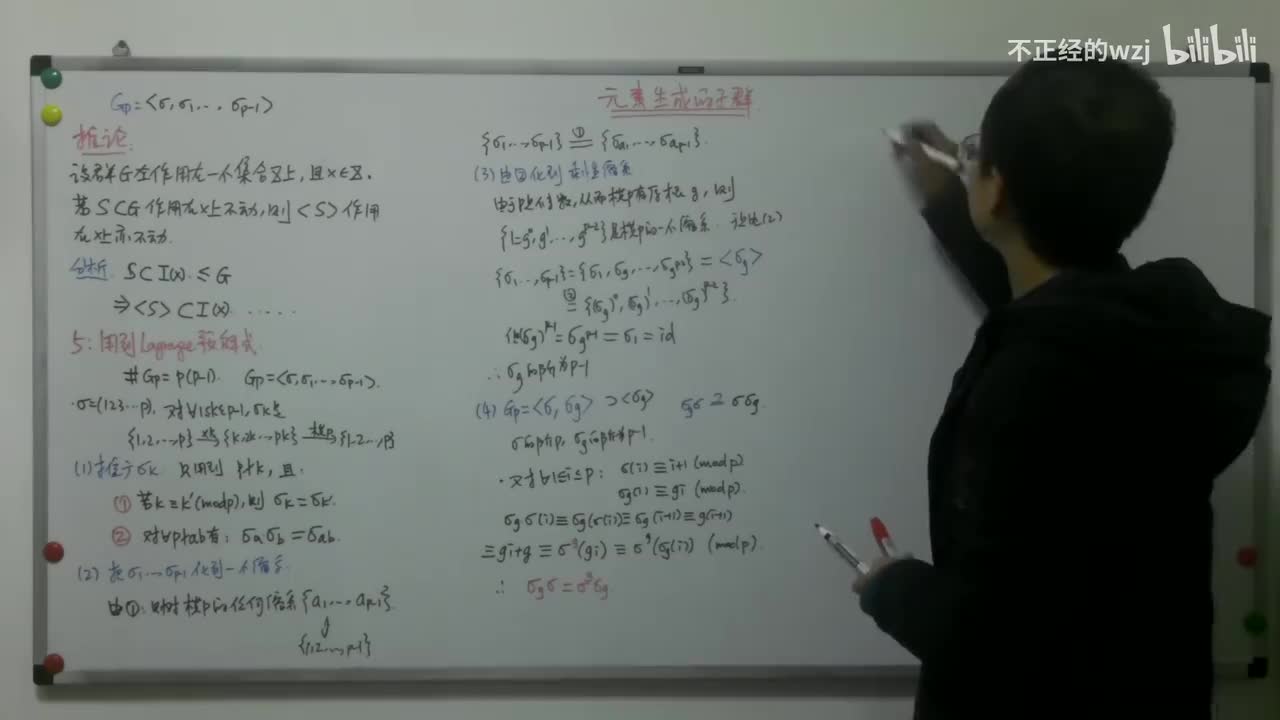 不正经的wzj bilibili
元素生成的子群
Gp=<σ,σ1,..,σp-1>
推论.
设群G左作用在一个集合X上,且x∈X.
若S⊂G作用在x上不动,则<S>作用
在x上亦不动.
分析. S⊂I(x).≤G
⇒<S>⊂I(x). .....
5:用到Lagrange预解式.
#Gp=p(p-1). Gp=<σ,σ1...,σp-1>.
·σ=(123...p), 对∀1≤k≤p-1,σk是
{1,2,..,p} {k,2k,..,pk} {1,2..,p}
(1)推广σk. 只用到 p∤k, 且:
① 若k≡k'(modp),则 σk=σk'.
② 对∀p∤ab有: σaσb=σab.
(2) 把σ1...σp-1化到一个缩系.
由①:则对模p的任何缩系{a1,...,ap-1}.
{1,2,...,p-1}
{σ1,..,σp-1} ①= {σa1,...,σap-1}.
(3)由②化到
由于p是素数,从而模p有原根g,则
{1=g⁰,g¹,...,gᵖ⁻²}是模p的一个缩系. 让由(2)
{σ1...,σp-1}={σ1,σg,...,σgᵖ⁻²}=<σg>
②= {(σg)⁰,(σg)¹,...,(σg)ᵖ⁻²}.
(σg)ᵖ⁻¹=σgᵖ⁻¹=σ1=id
∴σg的阶为p-1
(4) Gp=<σ,σg> ⊃<σg> σgσ=σσg.
σ的阶p, σg的阶为p-1.
·又对∀1≤i≤p: σ(i)≡i+1 (modp)
σg(i)≡gi (modp).
σgσ(i)≡σg(σ(i))≡σg(i+1)≡g(i+1)
≡gi+g≡σᵍ(gi)≡σᵍ(σg(i)) (modp).
∴ σgσ=σᵍσg.